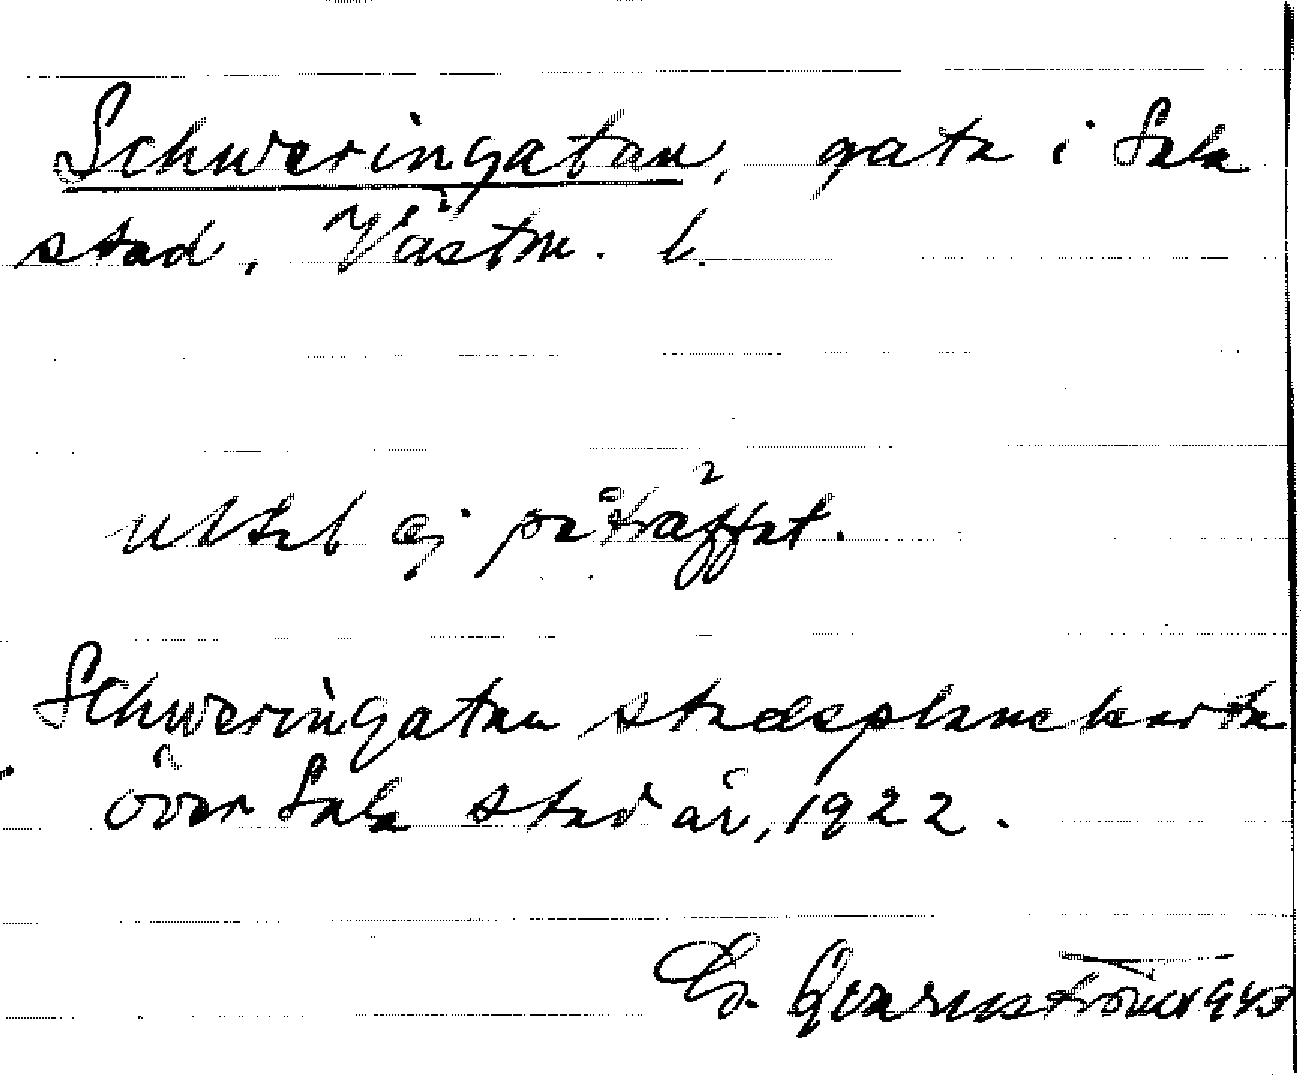 Schweringatan, gata i Sala
stad, Västm. l.
uttal ej påträffat.
Schweringatan stadsplanekarta
över Sala stad år, 1922.
Qvarnström